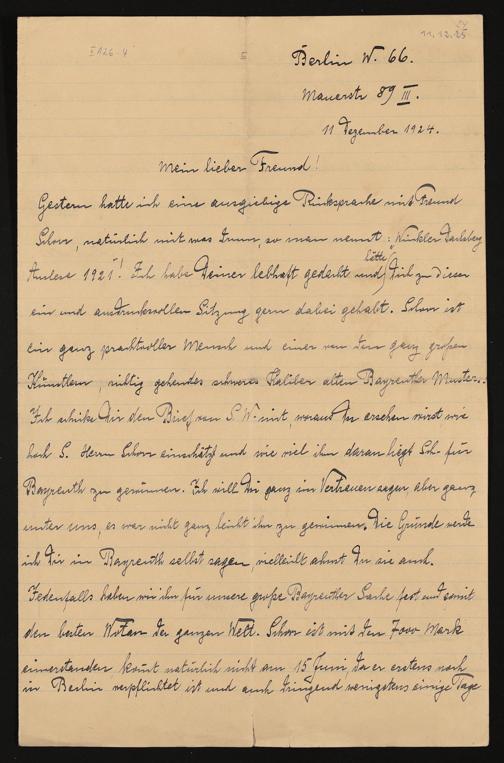 11.12.25
IA26-4
Berlin W. 66.
Mauerstr 89 III.
11 Dezember 1924.
Mein lieber Freund!
Gestern hatte ich eine ausgiebige Rücksprache mit Freund
Schorr, natürlich mit was Drum, so man nennt: "Winkler Carlsberg
Auslese 1921"! Ich habe Deiner lebhaft gedacht und hätte Dich zu dieser
ein und ausdrucksvollen Sitzung gern dabei gehabt. Schorr ist
ein ganz prachtvoller Mensch und einer von den ganz großen
Künstlern, richtig gehendes schweres Kaliber alten Bayreuther Musters.
Ich schicke Dir den Brief von S.W. mit, woraus Du ersehen wirst wie
hoch S. Herrn Schorr einschätzt und wie viel ihm daran liegt Sch. für
Bayreuth zu gewinnen. Ich will Dir ganz im Vertrauen sagen, aber ganz
unter uns, es war nicht ganz leicht ihn zu gewinnen. Die Gründe werde
ich Dir in Bayreuth selbst sagen, vielleicht ahnst Du sie auch.
Jedenfalls haben wir ihn für unsere große Bayreuther Sache fest und somit
den besten Wotan der ganzen Welt. Schorr ist mit den 7000 Mark
einverstanden, kommt natürlich nicht am 15 Juni, da er erstens noch
in Berlin verpflichtet ist und auch dringend wenigstens einige Tage